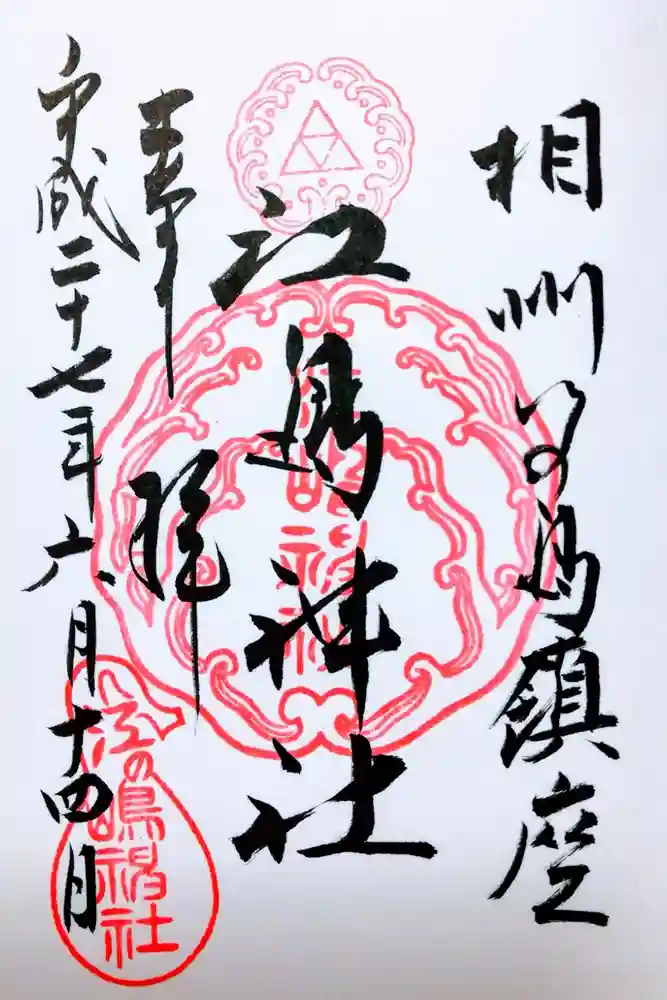 相州江の島鎮座
江島神社
奉拝
平成二十七年六月十四日
江の嶋神社